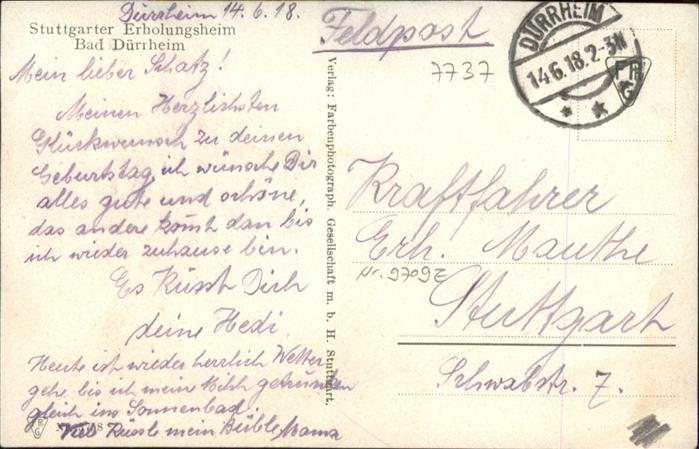 Dürrheim 14.6.18.
Stuttgarter Erholungsheim
Bad Dürrheim
Mein lieber Schatz!
Meinen Herzlichsten
Glückwunsch zu deinen
Geburtstag, ich wünsche Dir
alles gute und schöne,
das andere komt dan bis
ich wieder zuhause bin.
Es Küsst Dich
deine Hedi.
Heute ist wieder herrlich Wetter
gehe, bis ich mein Milch getrunken
gleich ins Sonnenbad.
Küssle mein Büble Mama
Verlag: Farbenphotograph. Gesellschaft m. b. H. Stuttgart.
Feldpost
7737
DÜRRHEIM
14.6.18.2-3N
FR
G
Kraftfahrer
Erh. Mauthe
Nr. 9709z
Stuttgart
Schwabstr. 7.